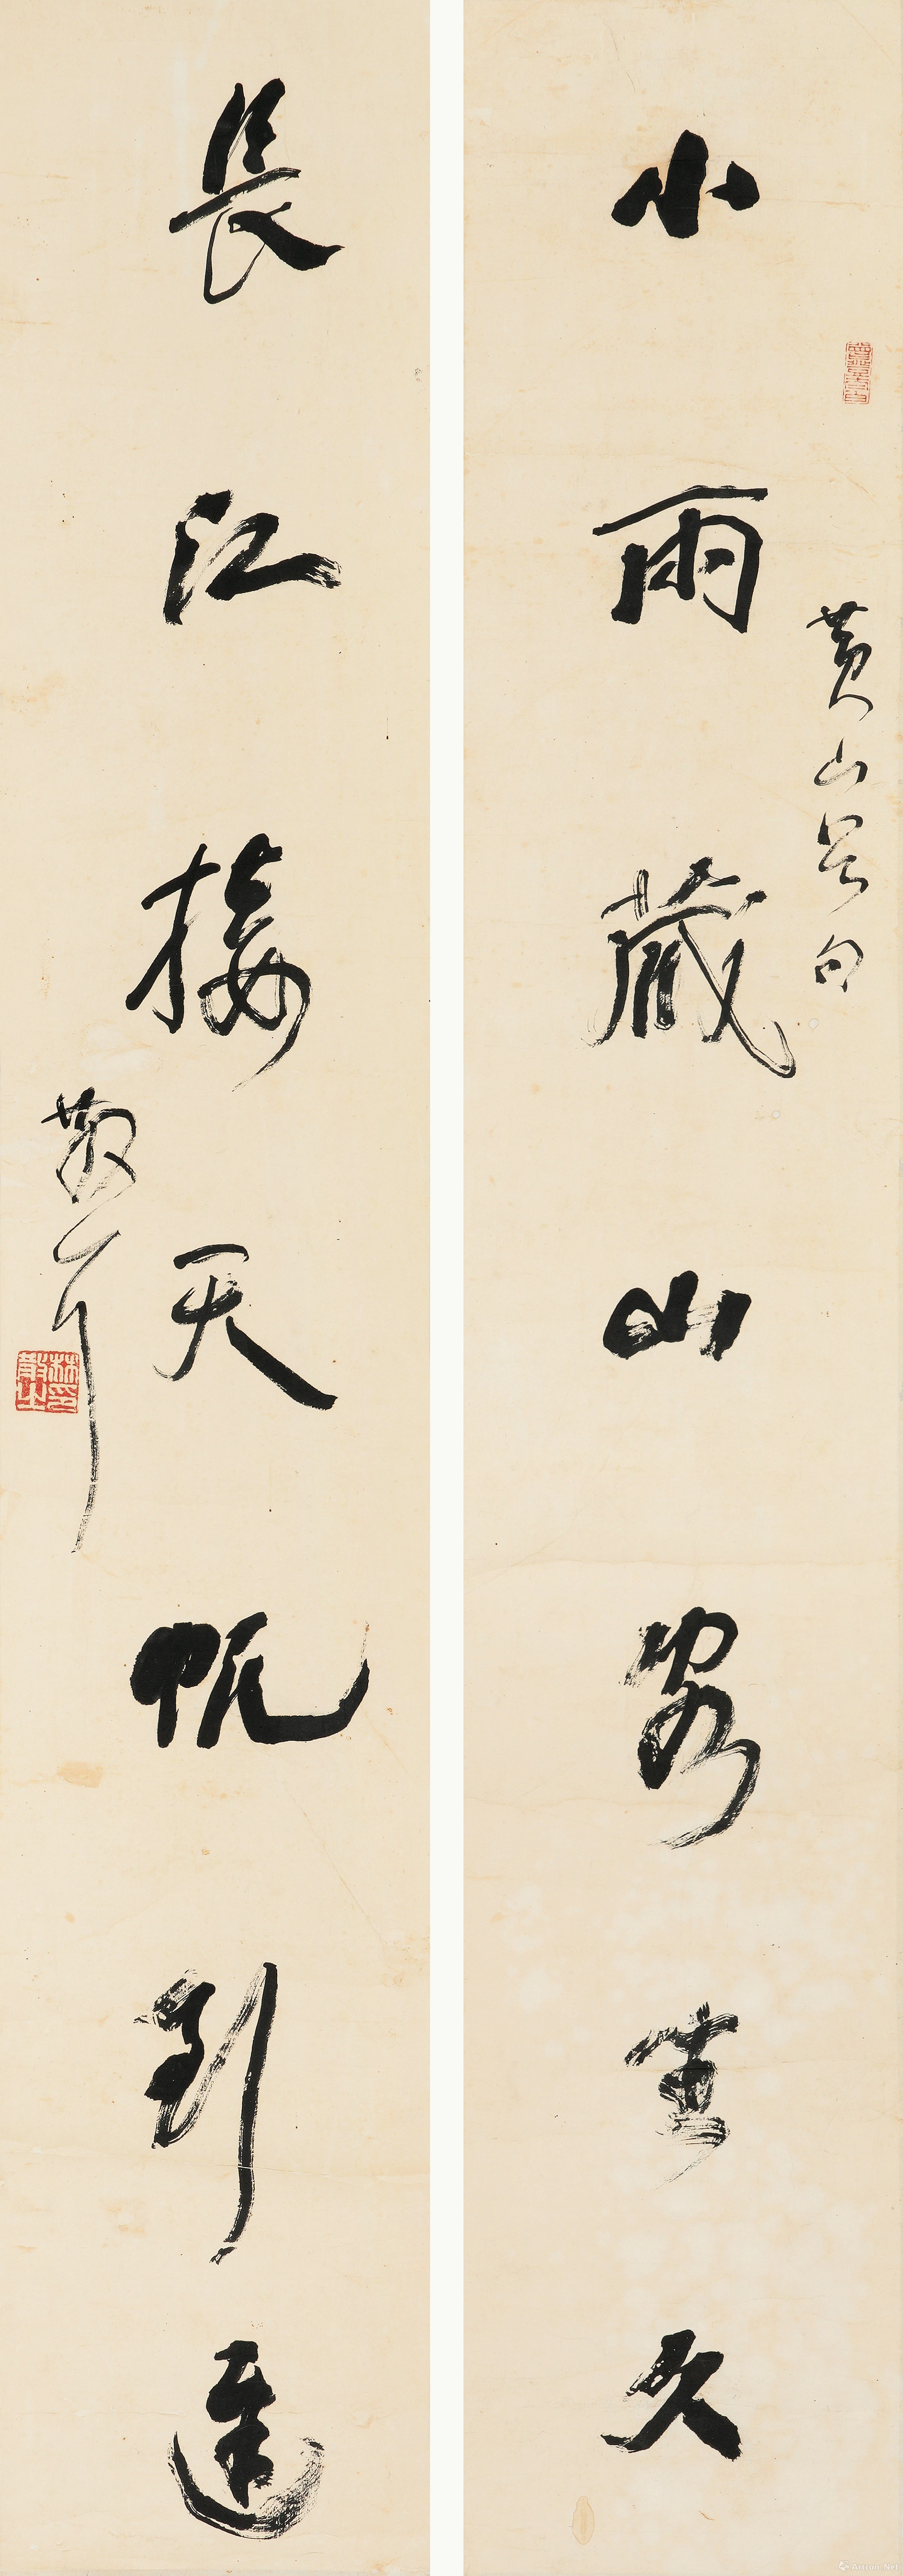 小雨藏山客坐久
黃山谷句
長江接天帆到遲
散耳
林散之印
Artron.Net